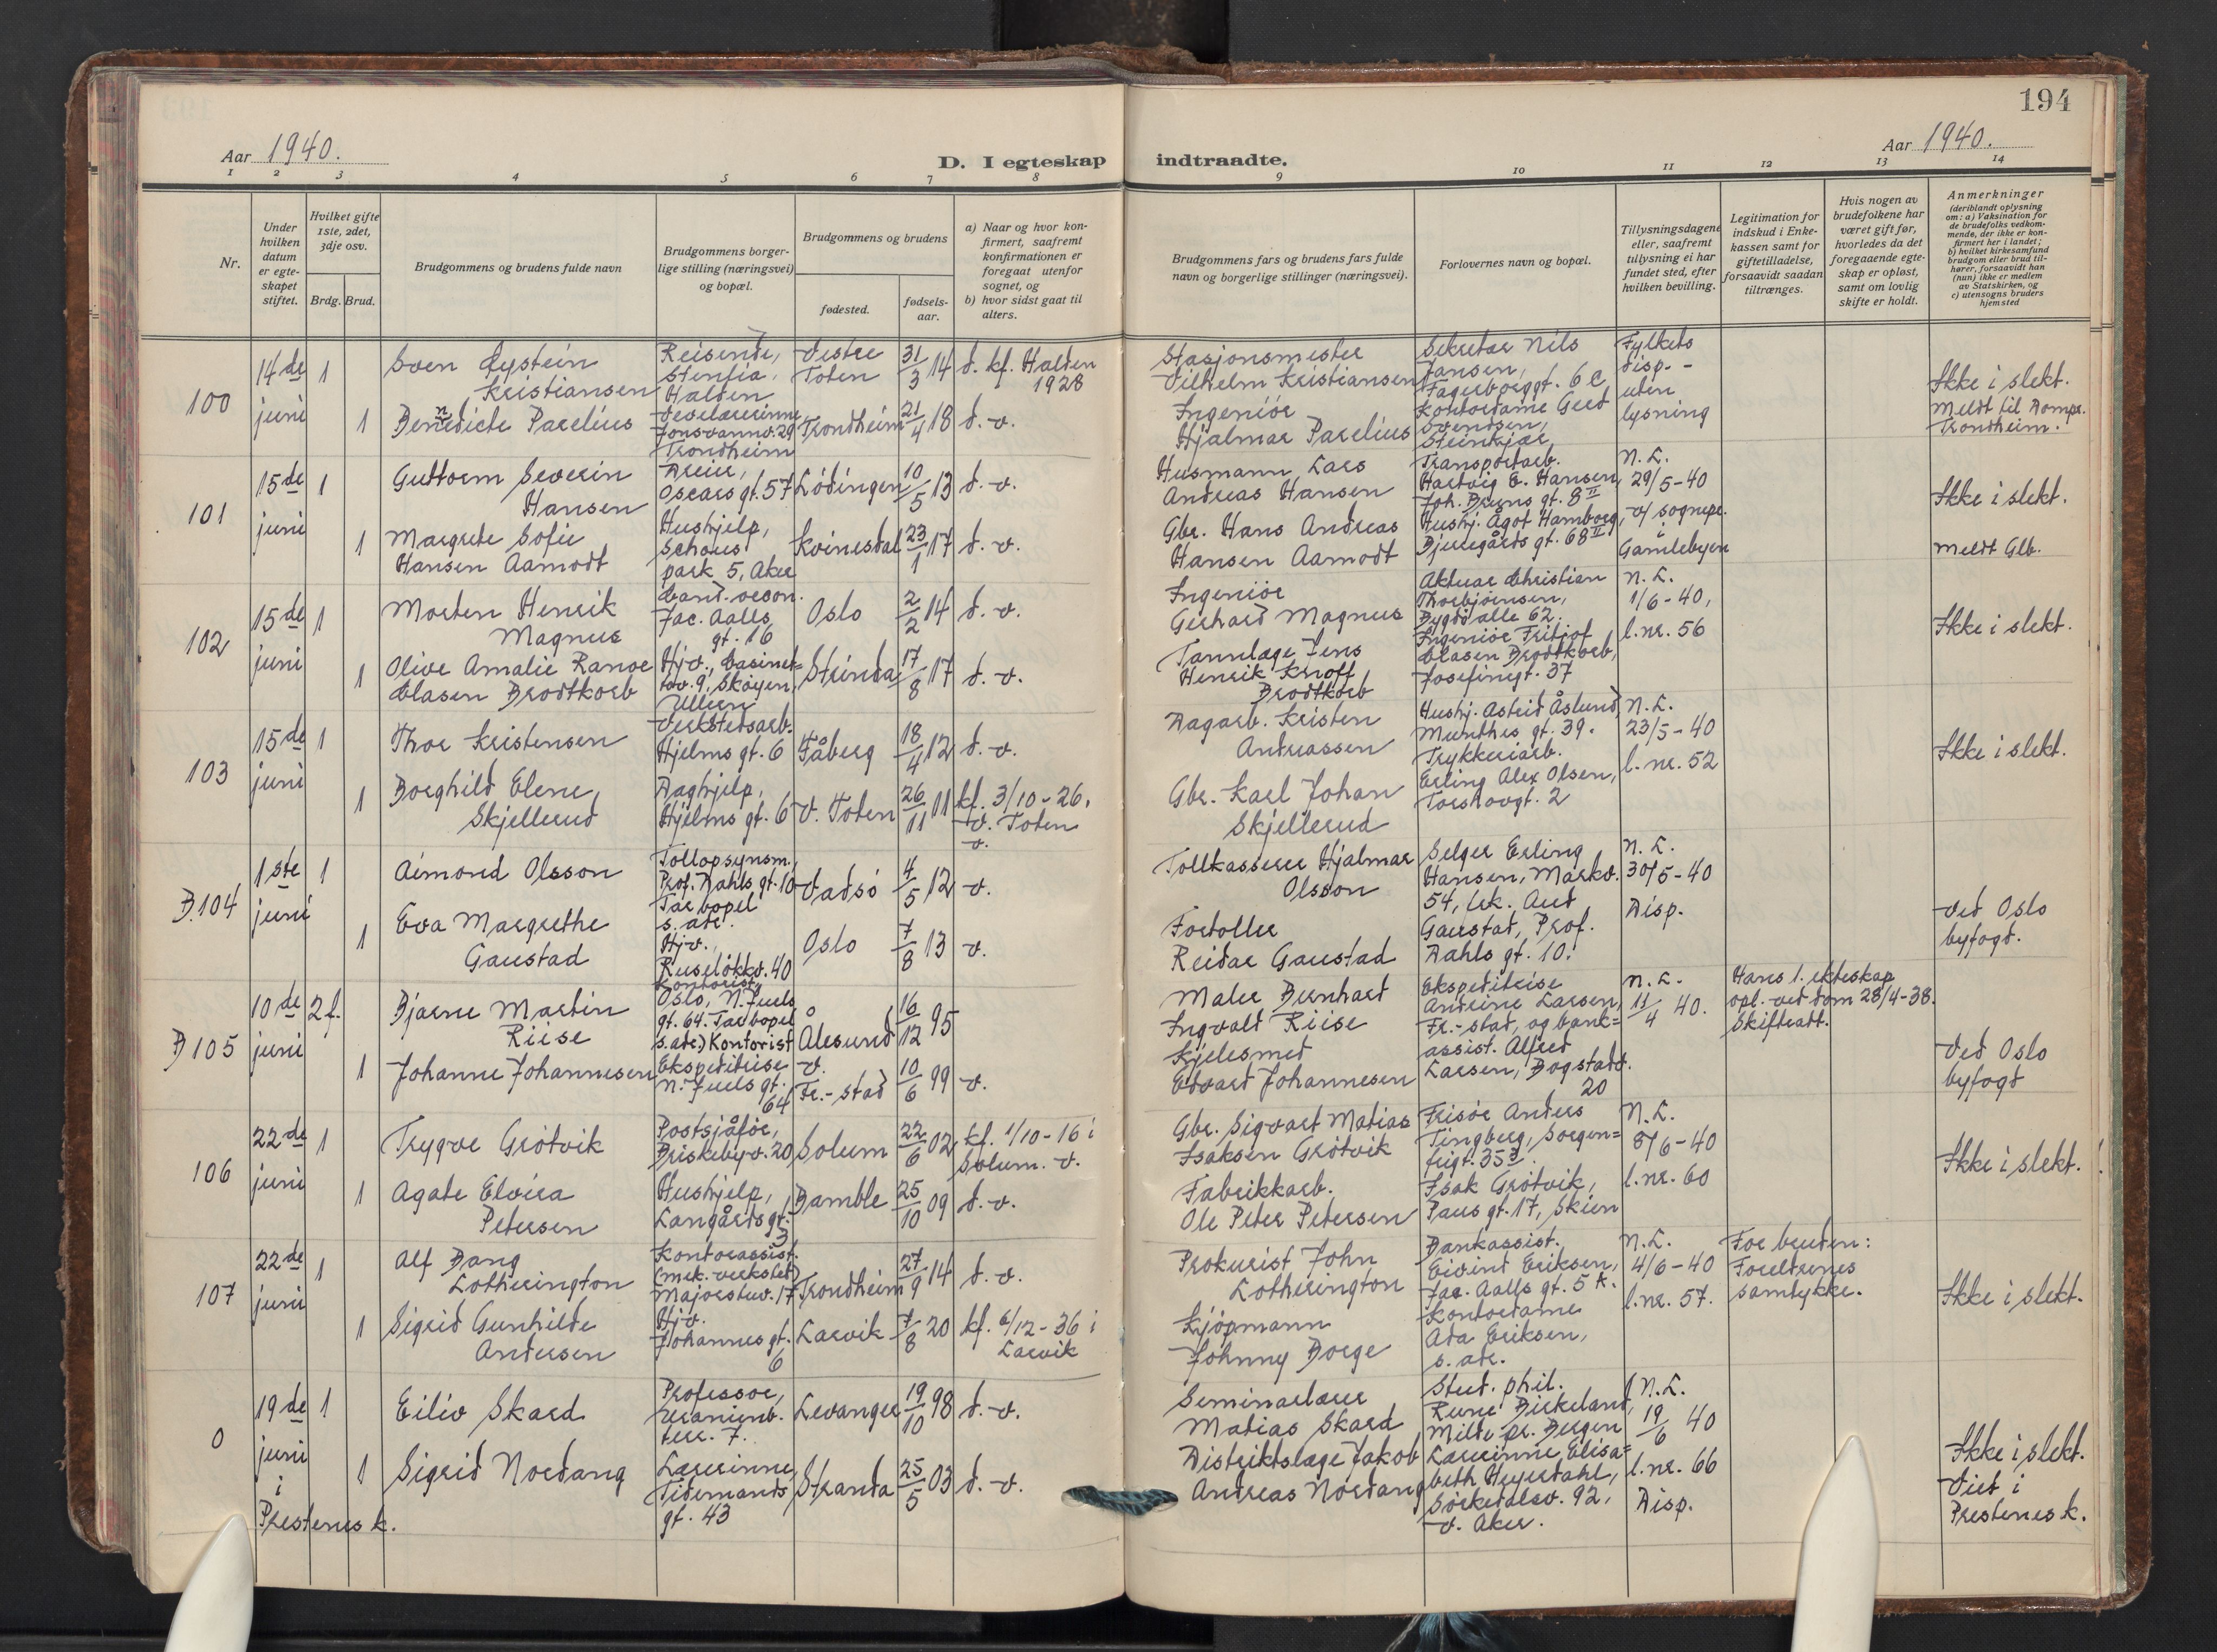 194
Aar 1940.
D. I egteskap indtraadte.
Aar 1940.
1 2 3 4 5 6 7 8 9 10 11 12 13 14
Nr.
Under hvilken datum er egte-skapet stiftet.
Hvilket gifte 1ste, 2det, 3dje osv.
Brdg. Brud.
Brudgommens og brudens fulde navn
Brudgommens borger-lige stilling (næringsvei) og bopæl.
Brudgommens og brudens
fødested.
fødsels-aar.
a) Naar og hvor kon-firmert, saafremt konfirmationen er foregaat utenfor sognet, og
b) hvor sidst gaat til alters.
Brudgommens fars og brudens fars fulde navn og borgerlige stillinger (næringsvei).
Forlovernes navn og bopæl.
Tillysningsdagene eller, saafremt tillysning ei har fundet sted, efter hvilken bevilling.
Legitimation for indskud i Enke-kassen samt for giftetilladelse, forsaavidt saadan tiltrænges.
Hvis nogen av brudefolkene har været gift før, hvorledes da det foregaaende egte-skap er opløst, samt om lovlig skifte er holdt.
Anmerkninger
(deriblandt oplysning om: a) Vaksination for de brudefolks vedkom-mende, der ikke er kon-firmert her i landet; b) hvilket kirkesamfund brudgom eller brud til-hører, forsaavidt han (hun) ikke er medlem av Statskirken, og c) utensogns bruders hjemsted
100
14de juni
1
Sven Øystein Kristiansen
Reisende, Stenfia, Halden
Vestre Toten
31/3 14
d. kf. Halden 1928
Stasjonsmester Vilhelm Kristiansen
Sekretær Nils Jansen, Fagerborggt. 6 C
Fylkets disp. - uten lysning
1
Bennedicte Parelius
Vevelærerinne Jonsvannsv. 29 Trondheim
Trondheim
21/4 18
d. v.
Ingeniör Hjalmar Parelius
Kontordame Gerd Svendsen, Steinkjær,
Ikke i slekt.
Meldt til Dompr. Trondheim.
101
15de juni
1
Guttorm Severin Hansen
Dreier, Oscars gt. 57
Lödingen
10/5 13
d. v.
Husmann Lars Andreas Hansen
Transportarb. Hartvig E. Hansen, Joh. Bruns gt. 8 II
N. L. 29/5-40
v/ sognepr. i Gamlebyen
1
Margrete Sofie Hansen Aamodt
Hushjelp, Schous park 5, Aker
Kvinesdal
23/1 17
d. v.
Gbr. Hans Andreas Hansen Aamodt
Hushj. Ågot Hamborg, Bjerregårds gt. 68 II
Ikke i slekt.
Meldt Glb.
102
15de juni
1
Morten Henrik Magnus
Cand. oecon. Jac. Aalls gt. 16
Oslo
2/2 14
d. v.
Ingeniör Gerhard Magnus
Aktuar Christian Thorbjörnsen, Bygdö alle 62.
N. L. 1/6-40, l. nr. 56
1
Olive Amalie Ranoe Clasen Brodtkorb
Hjv., Casinet-tov. 9, Sköyen, Ullern
Strinda
17/8 17
d. v.
Tannlæge Jens Henrik Knoff Brodtkorb
Ingeniör Fritjof Clasen Brodtkorb, Josefinegt. 37
Ikke i slekt.
103
15de juni
1
Thor Kristensen
Verkstedsarb. Hjelms gt. 6
Fåberg
18/4 12
d. v.
Dagarb. Kristen Andreassen
Hushj. Astrid Åslund, Munthes gt. 39.
N. L. 23/5-40 l. nr. 52
1
Borghild Elene Skjellerud
Daghjelp, Hjelms gt. 6
V. Toten
26/11 11
kf. 3/10-26, V. Toten v.
Gbr. Karl Johan Skjellerud
Trykkeriarb. Erling Alex Olsen, Torshovgt. 2
Ikke i slekt.
B. 104
1ste juni
1
Aimond Olsson
Tollopsynsm. Prof. Dahls gt. 10 Før bopel s. adr.
Vadsö
4/5 12
v.
Tollkasserer Hjalmar Olsson
Selger Erling Hansen, Markv. 54, lrk. Aud Gaustad, Prof. Dahls gt. 10.
N. L. 30/5-40 Disp.
1
Eva Margrethe Gaustad
Hjv., Ruselökkv. 40
Oslo
7/8 13
v.
Fortoller Reidar Gaustad
Ved Oslo byfogd.
B 105
10de juni
2 f.
Bjarne Martin Riise
Kontorist, Oslo, N. Juels gt. 64. Før bopel s. adr.) Kontorist
Ålesund
16/12 95
v.
Maler Bernhard Ingvald Riise
Ekspeditrise Andrine Larsen, Fr.-stad, og bank-assist. Alfred Larsen, Bogstadv. 20
N. L. 11/4 40.
Hans 1. ekteskap opl. ved dom 28/4-38. Skifteatt.
1
Johanne Johannesen
Ekspeditrise N. Juels gt. 64
Fr.-stad
10/6 99
v.
Kjelesmed Edvard Johannesen
Ved Oslo byfogd
106
22de juni
1
Trygve Grötvik
Postsjåför, Briskebyv. 20
Solum
22/6 02
kf. 1/10-16 i Solum. v.
Gbr. Sigvart Matias Isaksen Grötvik
Frisör Anders Tingberg, Sorgen-frigt. 35 3.
N. L. 8/6-40 l. nr. 60
1
Agate Elvira Petersen
Hushjelp, Langårds gt. 3
Bamble
25/10 09
d. v.
Fabrikkarb. Ole Peter Petersen
Isak Grötvik, Paus gt. 17, Skien
Ikke i slekt.
107
22de juni
1
Alf Bang Lotherington
Kontorassist. (mek. verksted) Majorstuv. 17
Trondheim
27/9 14
d. v.
Prokurist John Lotherington
Bankassist. Eivind Eriksen, Jac. Aalls gt. 5 A.
N. L. 4/6-40 l. nr. 57.
For bruden: Foreldrenes samtykke.
1
Sigrid Gunhilde Andersen
Hjv. Johannes gt. 6
Larvik
7/8 20
kf. 6/12-36 i Larvik
Kjöpmann Johnny Borge
Kontordame Ada Eriksen, s. adr.
Ikke i slekt.
0
19de juni i Prestenes k.
1
Eiliv Skard
Professor, Uranienb. terr. 7.
Levanger
19/10 98
d. v.
Seminarlærer Matias Skard
Stud. phil. Rune Birkeland, Milde pr. Bergen
N. L. 19/6 40 l. nr. 66 Disp.
1
Sigrid Nordang
Lærerinne, Tidemands gt. 43
Stranda
25/5 03
d. v.
Distriktslæge Jakob Andreas Nordang
Lærerinne Elisa-beth Heyerdahl, Sörkedalsv. 92, V. Aker.
Ikke i slekt. Viet i Prestenes k.